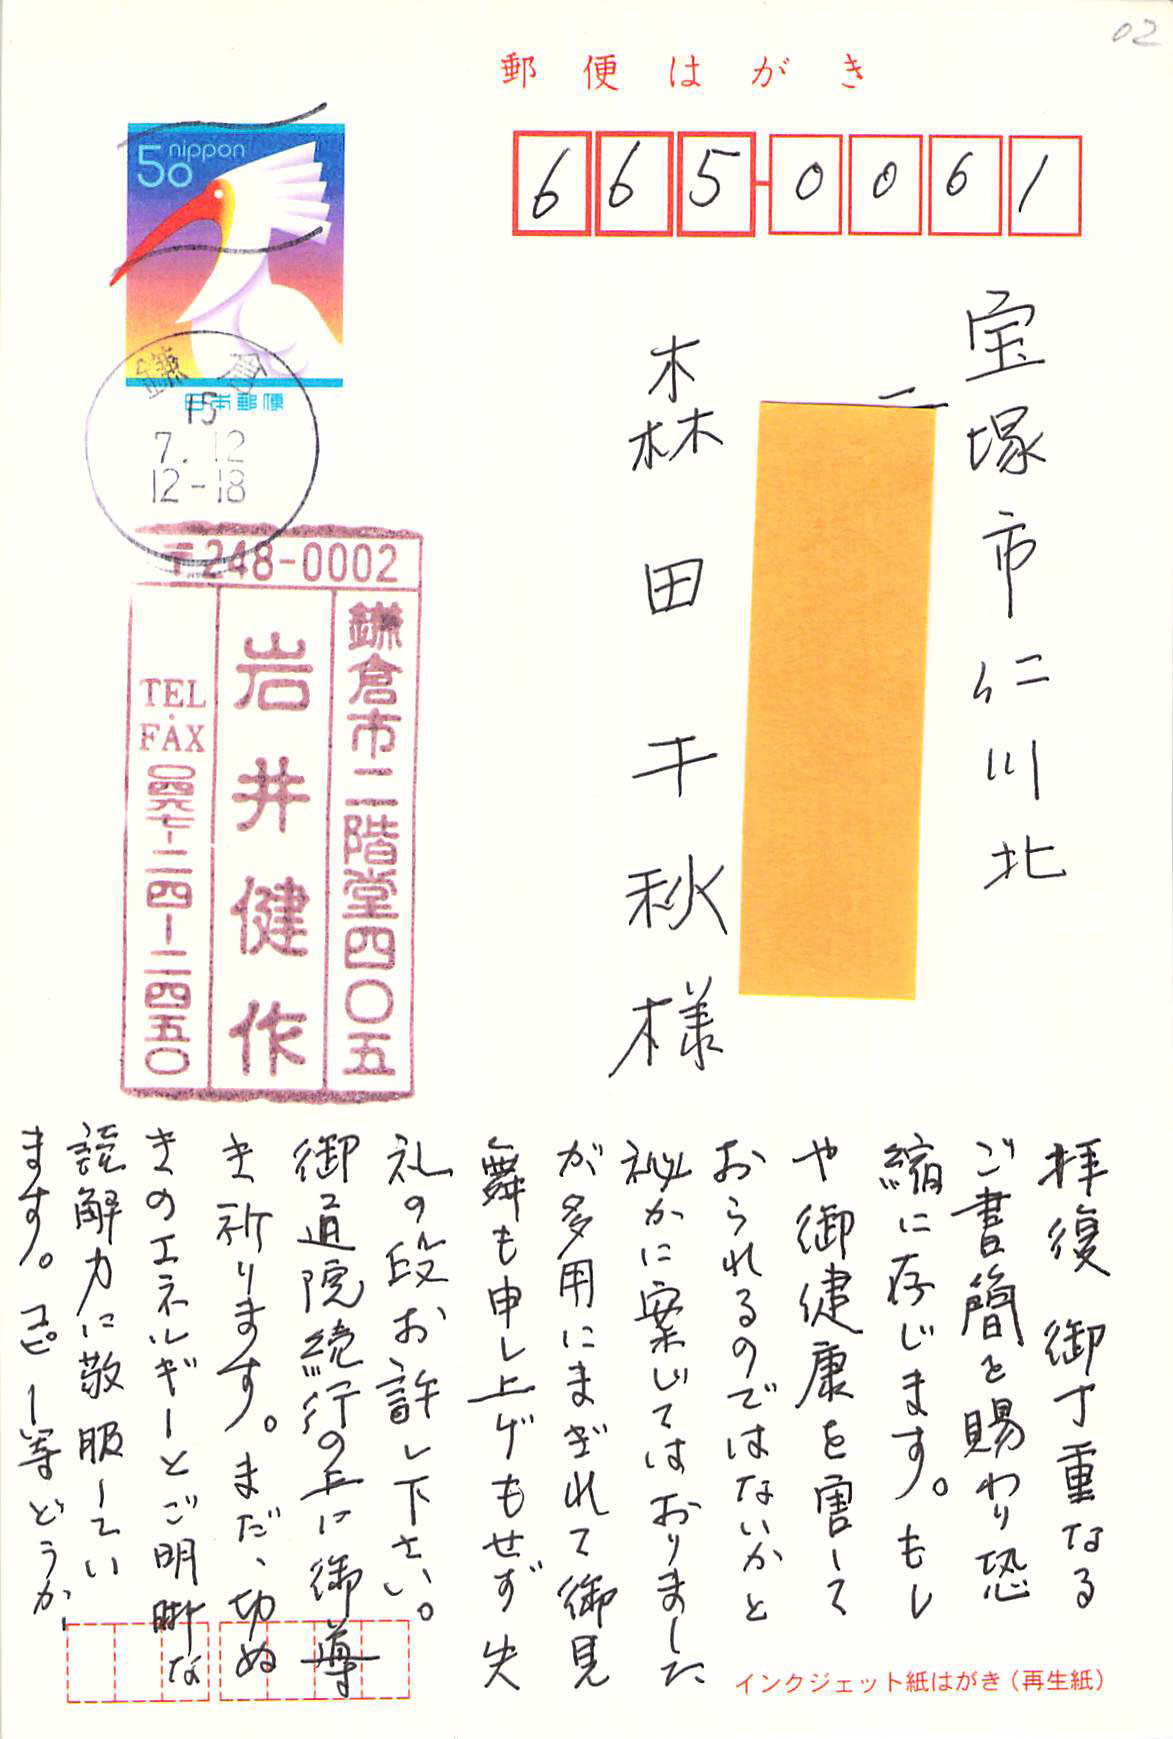 02
郵便はがき
665-0061
50 nippon
日本郵便
鎌倉
15
7.12
12-18
宝塚市仁川北
二
森田千秋様
〒248-0002
鎌倉市二階堂四〇五
岩井健作
TEL・FAX 〇四六七-二四-二四五〇
拝復 御丁重なる
ご書簡を賜わり恐
縮に存じます。もし
や御健康を害して
おられるのではないかと
秘かに案じてはおりました
が多用にまぎれて御見
舞も申し上げもせず失
礼の段お許し下さい。
御道院続行の上に御導
き祈ります。まだ、切ぬ
きのエネルギーとご明晰な
読解力に敬服してい
ます。コピー等どうか
インクジェット紙はがき(再生紙)